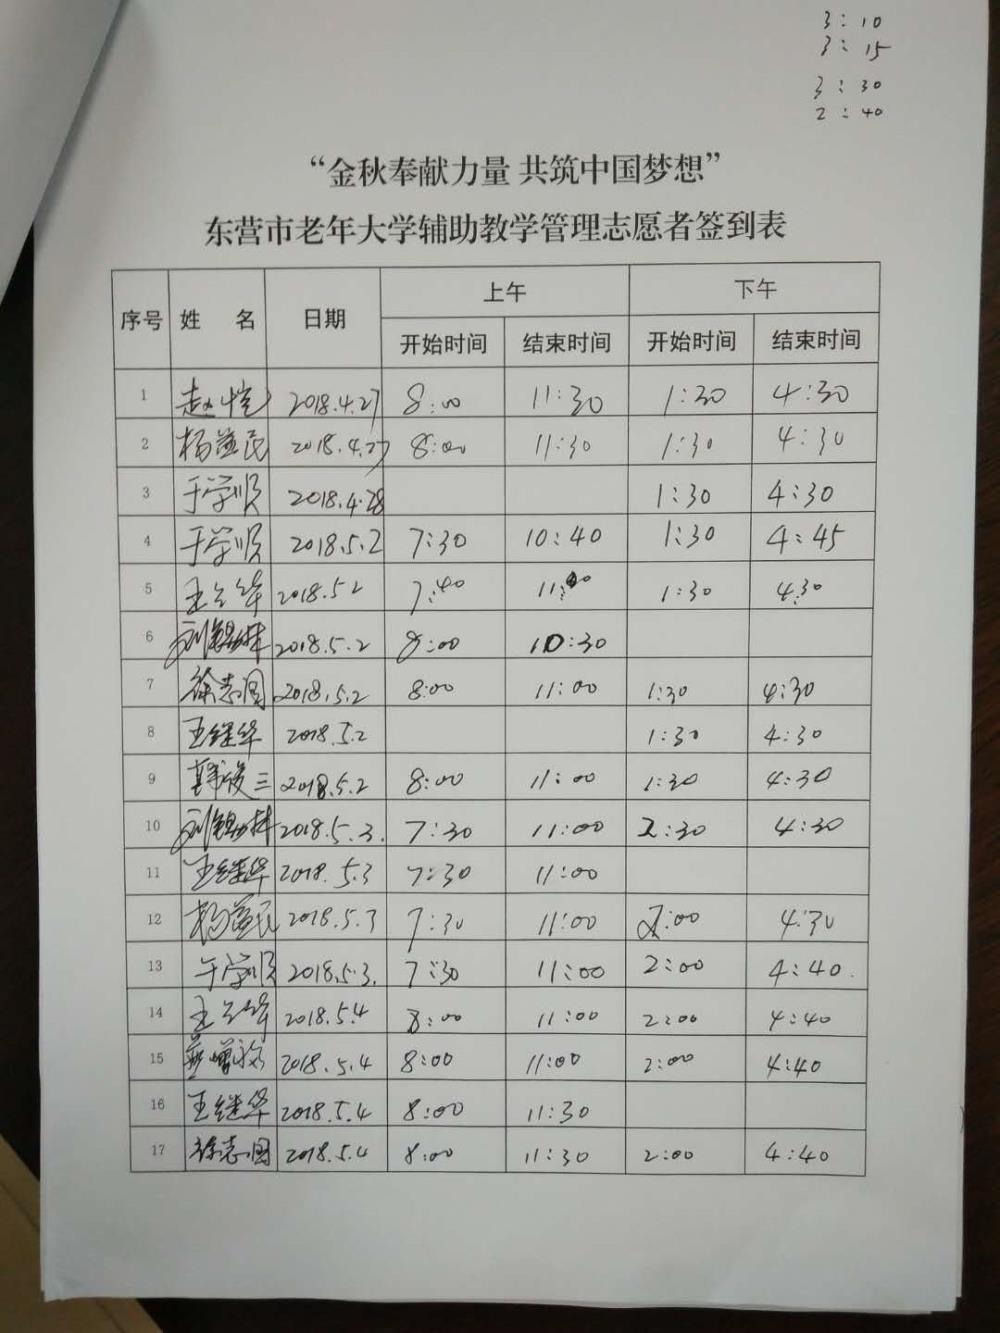 3:10
3:15
3:30
2:40
“金秋奉献力量 共筑中国梦想”
东营市老年大学辅助教学管理志愿者签到表
序号 姓 名 日期 上午 下午
开始时间 结束时间 开始时间 结束时间
1 赵恺 2018.4.27 8:00 11:30 1:30 4:30
2 杨益民 2018.4.27 8:00 11:30 1:30 4:30
3 于学顺 2018.4.28 1:30 4:30
4 于学顺 2018.5.2 7:30 10:40 1:30 4:45
5 王 华 2018.5.2 7:40 1:30 4:30
6 刘锡林 2018.5.2 8:00 10:30
7 徐志国 2018.5.2 8:00 11:00 1:30 4:30
8 王继华 2018.5.2 1:30 4:30
9 韩俊三 2018.5.2 8:00 11:00 1:30 4:30
10 刘锡林 2018.5.3. 7:30 11:00 2:30 4:30
11 王继华 2018.5.3 7:30 11:00
12 杨益民 2018.5.3 7:30 11:00 2:00 4:30
13 于学顺 2018.5.3. 7:30 11:00 2:00 4:40.
14 王 华 2018.5.4 8:00 11:00 2:00 4:40
15 2018.5.4 8:00 11:00 2:00 4:40
16 王继华 2018.5.4 8:00 11:30
17 徐志国 2018.5.4 8:00 11:30 2:00 4:40